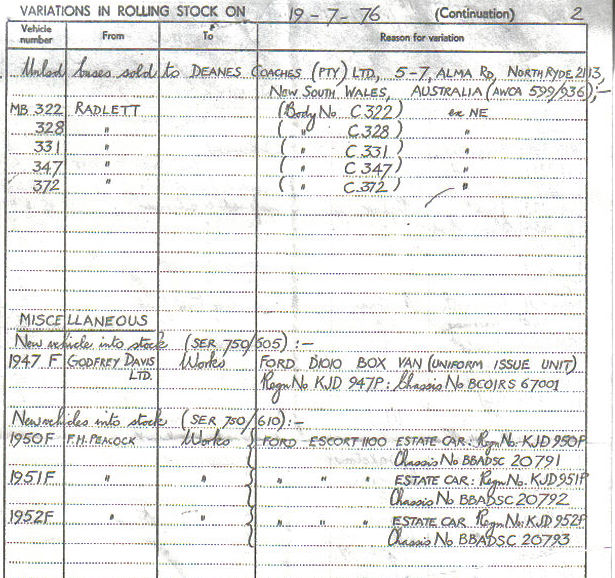 VARIATIONS IN ROLLING STOCK ON 19-7-76 (Continuation) 2
Vehicle number From To Reason for variation
Unlsd buses sold to DEANES COACHES (PTY) LTD, 5-7, ALMA RD, NORTH RYDE 2113,
NEW SOUTH WALES, AUSTRALIA (AWCA 599/936);-
MB 322 RADLETT (Body No C322) ex NE
328 " ( " C328) "
331 " ( " C331) "
347 " ( " C347) "
372 " ( " C372) "
MISCELLANEOUS
New vehicle into stock (SER 750/605):-
1947 F GODFREY DAVIS Works FORD D1010 BOX VAN (UNIFORM ISSUE UNIT)
LTD. Regn No KJD 947P: Chassis No BC01RS 67001
New vehicles into stock (SER 750/610):-
1950F F.H. PEACOCK Works FORD ESCORT 1100 ESTATE CAR: Regn No. KJD 950P
Chassis No BBADSC 20791
1951F " " " " " ESTATE CAR: Regn No. KJD 951P
Chassis No BBADSC 20792
1952F " " " " " ESTATE CAR Regn No: KJD 952P
Chassis No BBADSC 20793